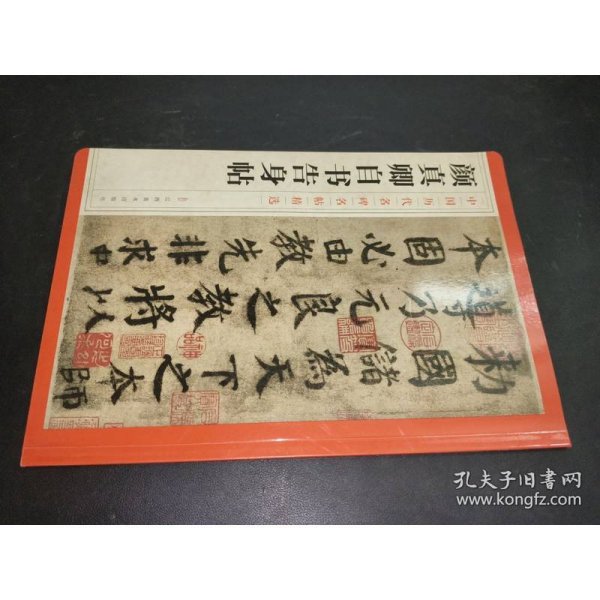 颜真卿自书告身帖
中国历代名碑名帖精选
江西美术出版社
勅國儲為天下之本師
導乃元良之教將以
本固必由教先非求中
孔夫子旧書网
www.kongfz.com